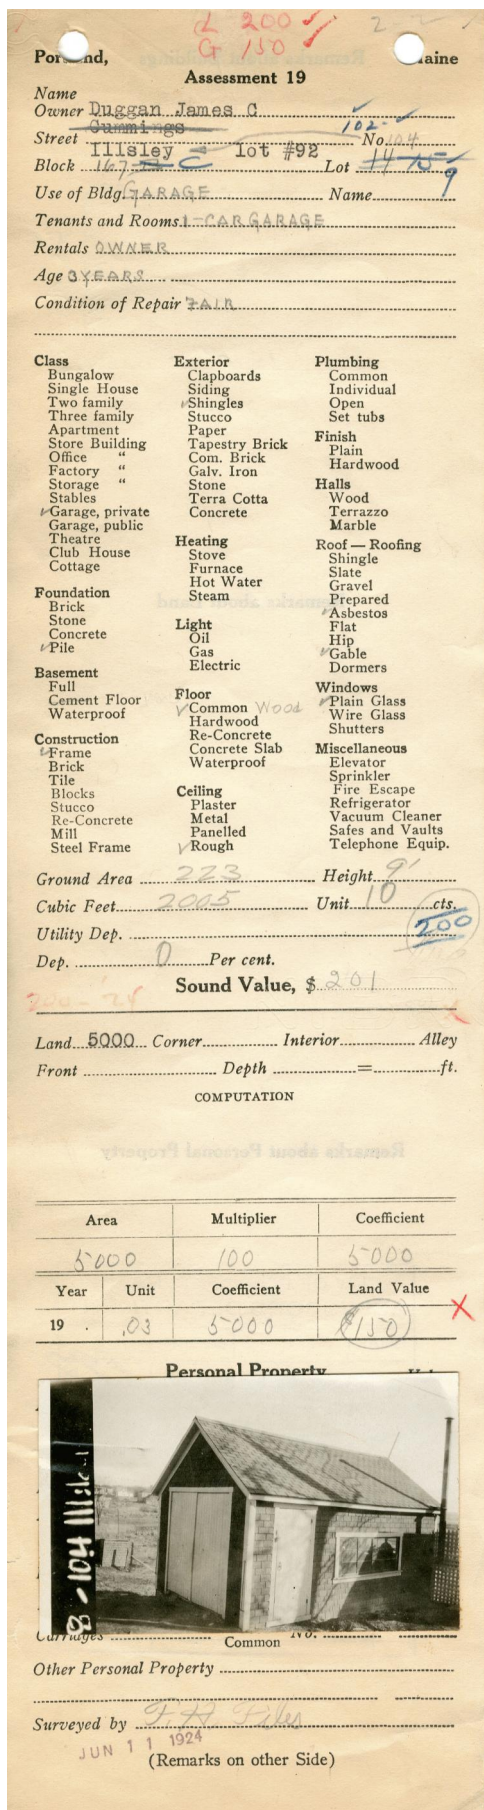 L 200 ✓
G 150 ✓
Portland, Maine
Assessment 19
Name
Owner Duggan James C
Cummings 102- ✓
Street Illsley lot #92 No. 104
Block 167 C Lot 14 15 9
Use of Bldg. GARAGE Name
Tenants and Rooms 1-CAR GARAGE
Rentals OWNER
Age 3 YEARS
Condition of Repair FAIR
Class
Bungalow
Single House
Two family
Three family
Apartment
Store Building
Office "
Factory "
Storage "
Stables
✓Garage, private
Garage, public
Theatre
Club House
Cottage
Foundation
Brick
Stone
Concrete
✓Pile
Basement
Full
Cement Floor
Waterproof
Construction
✓Frame
Brick
Tile
Blocks
Stucco
Re-Concrete
Mill
Steel Frame
Exterior
Clapboards
Siding
✓Shingles
Stucco
Paper
Tapestry Brick
Com. Brick
Galv. Iron
Stone
Terra Cotta
Concrete
Heating
Stove
Furnace
Hot Water
Steam
Light
Oil
Gas
Electric
Floor
✓Common Wood
Hardwood
Re-Concrete
Concrete Slab
Waterproof
Ceiling
Plaster
Metal
Panelled
✓Rough
Plumbing
Common
Individual
Open
Set tubs
Finish
Plain
Hardwood
Halls
Wood
Terrazzo
Marble
Roof — Roofing
Shingle
Slate
Gravel
Prepared
✓Asbestos
Flat
Hip
✓Gable
Dormers
Windows
✓Plain Glass
Wire Glass
Shutters
Miscellaneous
Elevator
Sprinkler
Fire Escape
Refrigerator
Vacuum Cleaner
Safes and Vaults
Telephone Equip.
Ground Area 223 Height 9'
Cubic Feet 2005 Unit 10 cts.
Utility Dep. 200
Dep. 0 Per cent.
Sound Value, $ 201
200 - '24
Land 5000 Corner Interior Alley
Front Depth = ft.
COMPUTATION
Area Multiplier Coefficient
5000 100 5000
Year Unit Coefficient Land Value
19 . .03 5000 $150 X
Personal Property
8-104 Illsley
Carriages No.
Common
Other Personal Property
Surveyed by F. H. Files
JUN 11 1924
(Remarks on other Side)